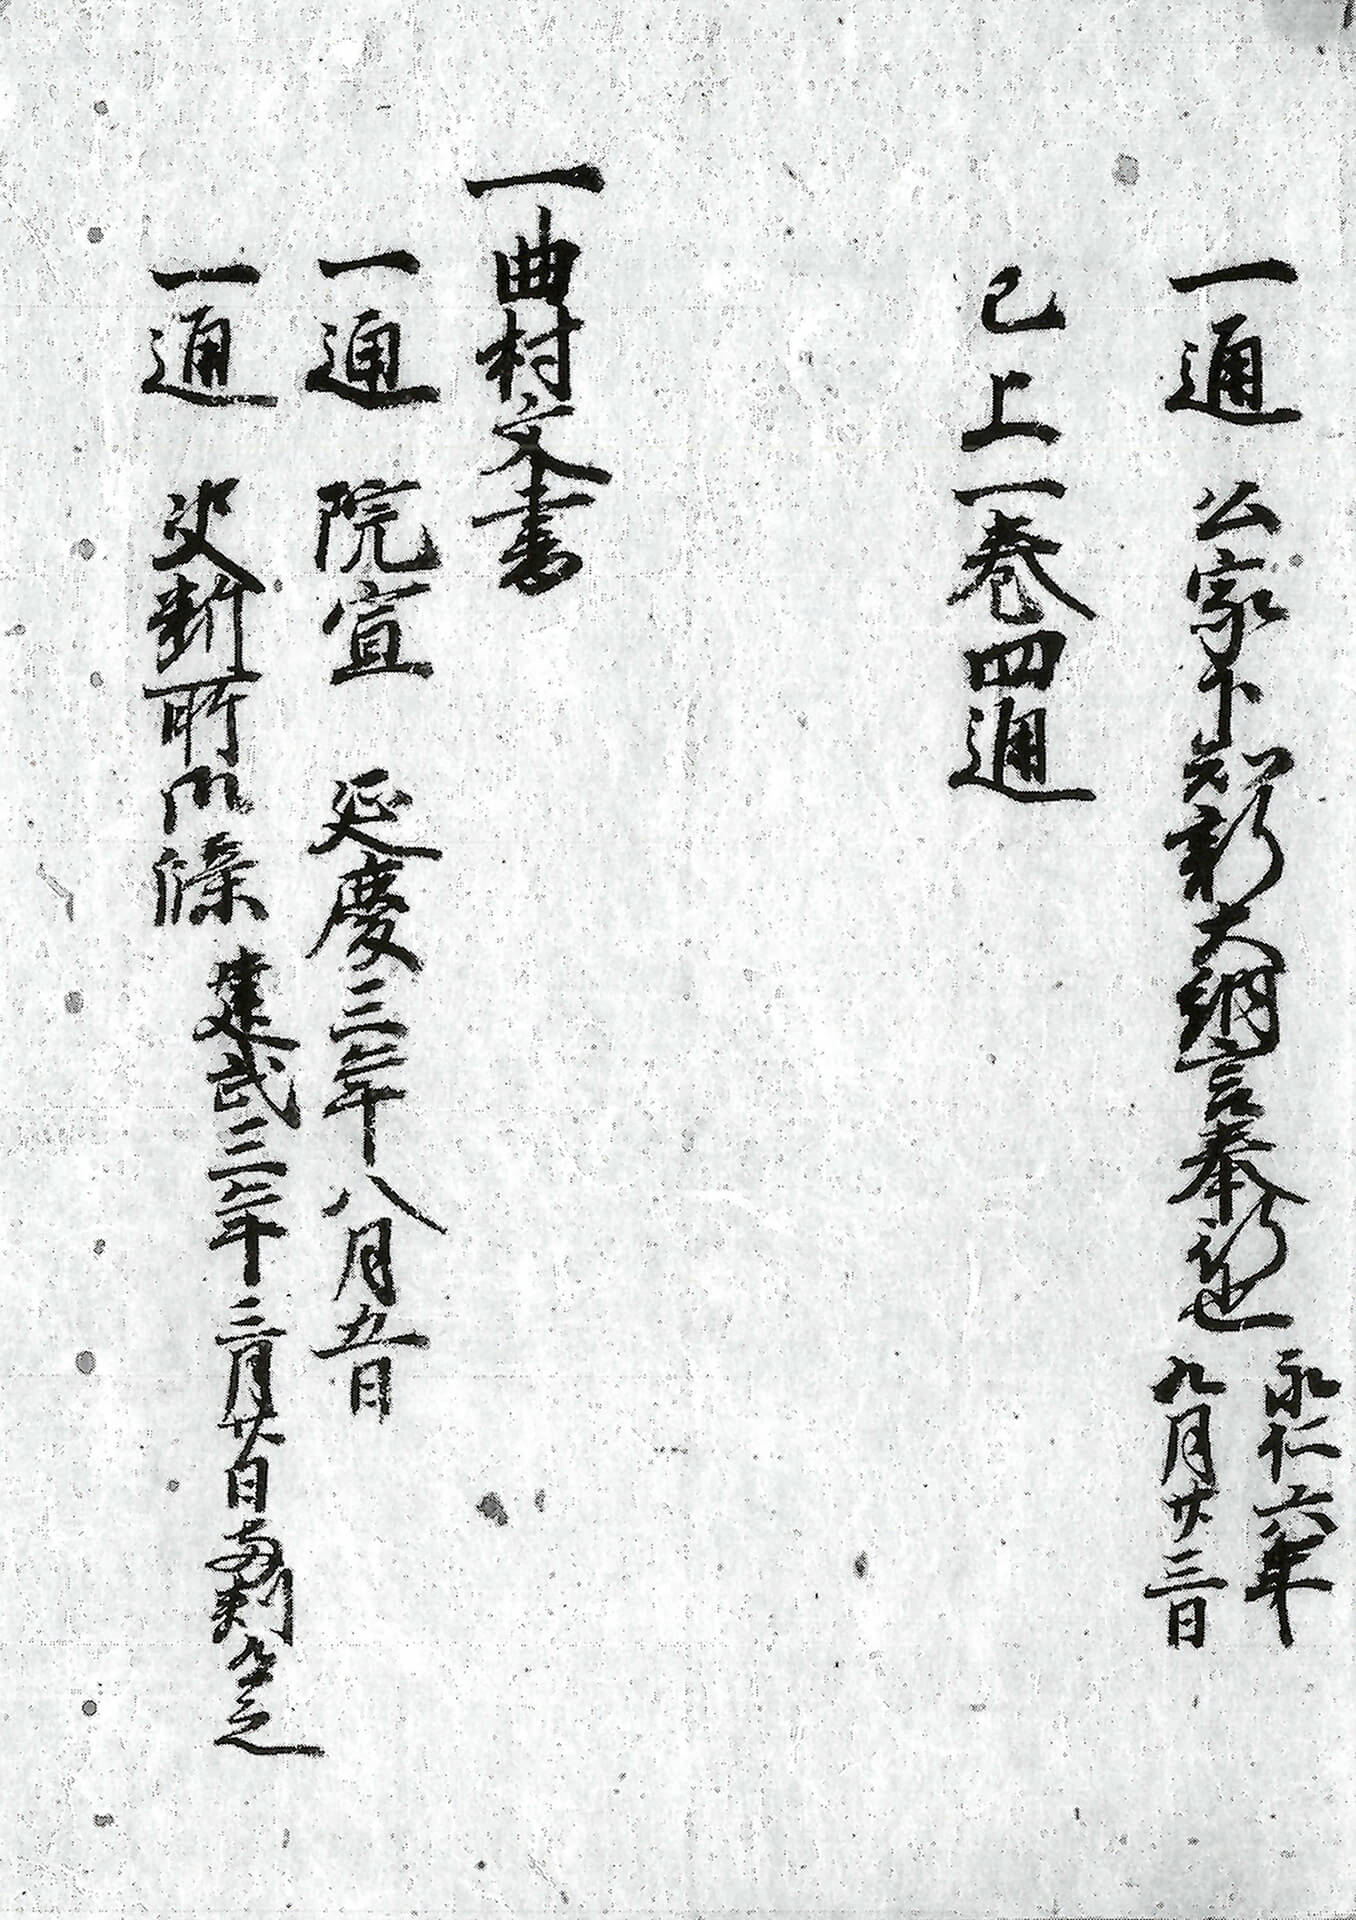 一通 公家下知 新大納言奉 永仁六年
九月廿三日
已上一巻四通
一曲村文書
一通 院宣 延慶三年八月五日
一通 決断所御牒 建武三年三月廿日